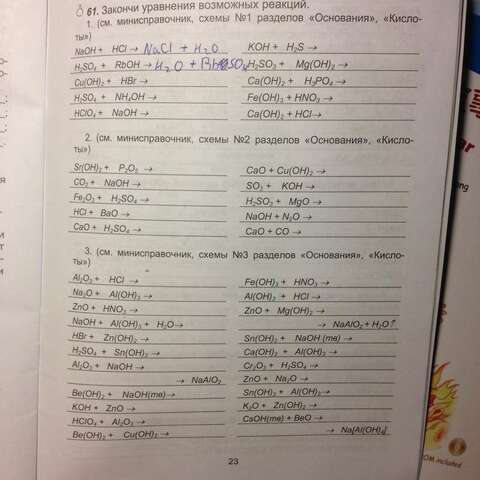 61. Закончи уравнения возможных реакций.
1. (см. минисправочник, схемы №1 разделов «Основания», «Кисло-
ты»)
NaOH + HCl → NaCl + H₂O
KOH + H₂S →
H₂SO₄ + RbOH → H₂O +
H₂SO₃ + Mg(OH)₂ →
Cu(OH)₂ + HBr →
Ca(OH)₂ + H₃PO₄ →
H₂SO₄ + NH₄OH →
Fe(OH)₃ + HNO₃ →
HClO₄ + NaOH →
Ca(OH)₂ + HCl →
2. (см. минисправочник, схемы №2 разделов «Основания», «Кисло-
ты»)
Sr(OH)₂ + P₂O₅ →
CaO + Cu(OH)₂ →
CO₂ + NaOH →
SO₃ + KOH →
Fe₂O₃ + H₂SO₄ →
H₂SO₄ + MgO →
HCl + BaO →
NaOH + N₂O →
CaO + H₂SO₄ →
CaO + CO →
3. (см. минисправочник, схемы №3 разделов «Основания», «Кисло-
ты»)
Al₂O₃ + HCl →
Fe(OH)₃ + HNO₃ →
Na₂O + Al(OH)₃ →
Al(OH)₃ + HCl →
ZnO + HNO₃ →
ZnO + Mg(OH)₂ →
NaOH + Al(OH)₃ + H₂O →
→ NaAlO₂ + H₂O↑
HBr + Zn(OH)₂ →
Sn(OH)₂ + NaOH (тв) →
H₂SO₄ + Sn(OH)₂ →
Ca(OH)₂ + Al(OH)₃ →
Al₂O₃ + NaOH →
Cr₂O₃ + H₂SO₄ →
→ NaAlO₂
ZnO + Na₂O →
Be(OH)₂ + NaOH(тв) →
Sn(OH)₂ + Al(OH)₃ →
KOH + ZnO →
K₂O + Zn(OH)₂ →
HClO₄ + Al₂O₃ →
CsOH(тв) + BeO →
Be(OH)₂ + Cu(OH)₂ →
→ Na[Al(OH)₄]
23
included